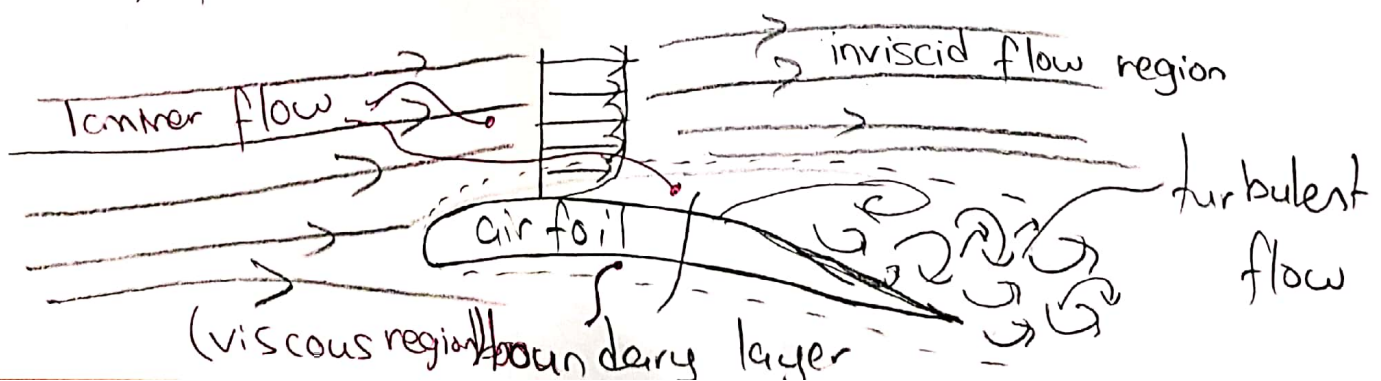 inviscid flow region
laminer flow
turbulent
flow
air foil
(viscous region) boundary layer